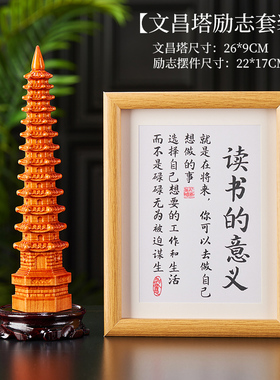 【文昌塔励志套
文昌塔尺寸：26*9CM
励志摆件尺寸：22*17CM
读书的意义
就是在将来，你可以去做自己
想做的事
选择自己想要的工作和生活
而不是碌碌无为被迫谋生